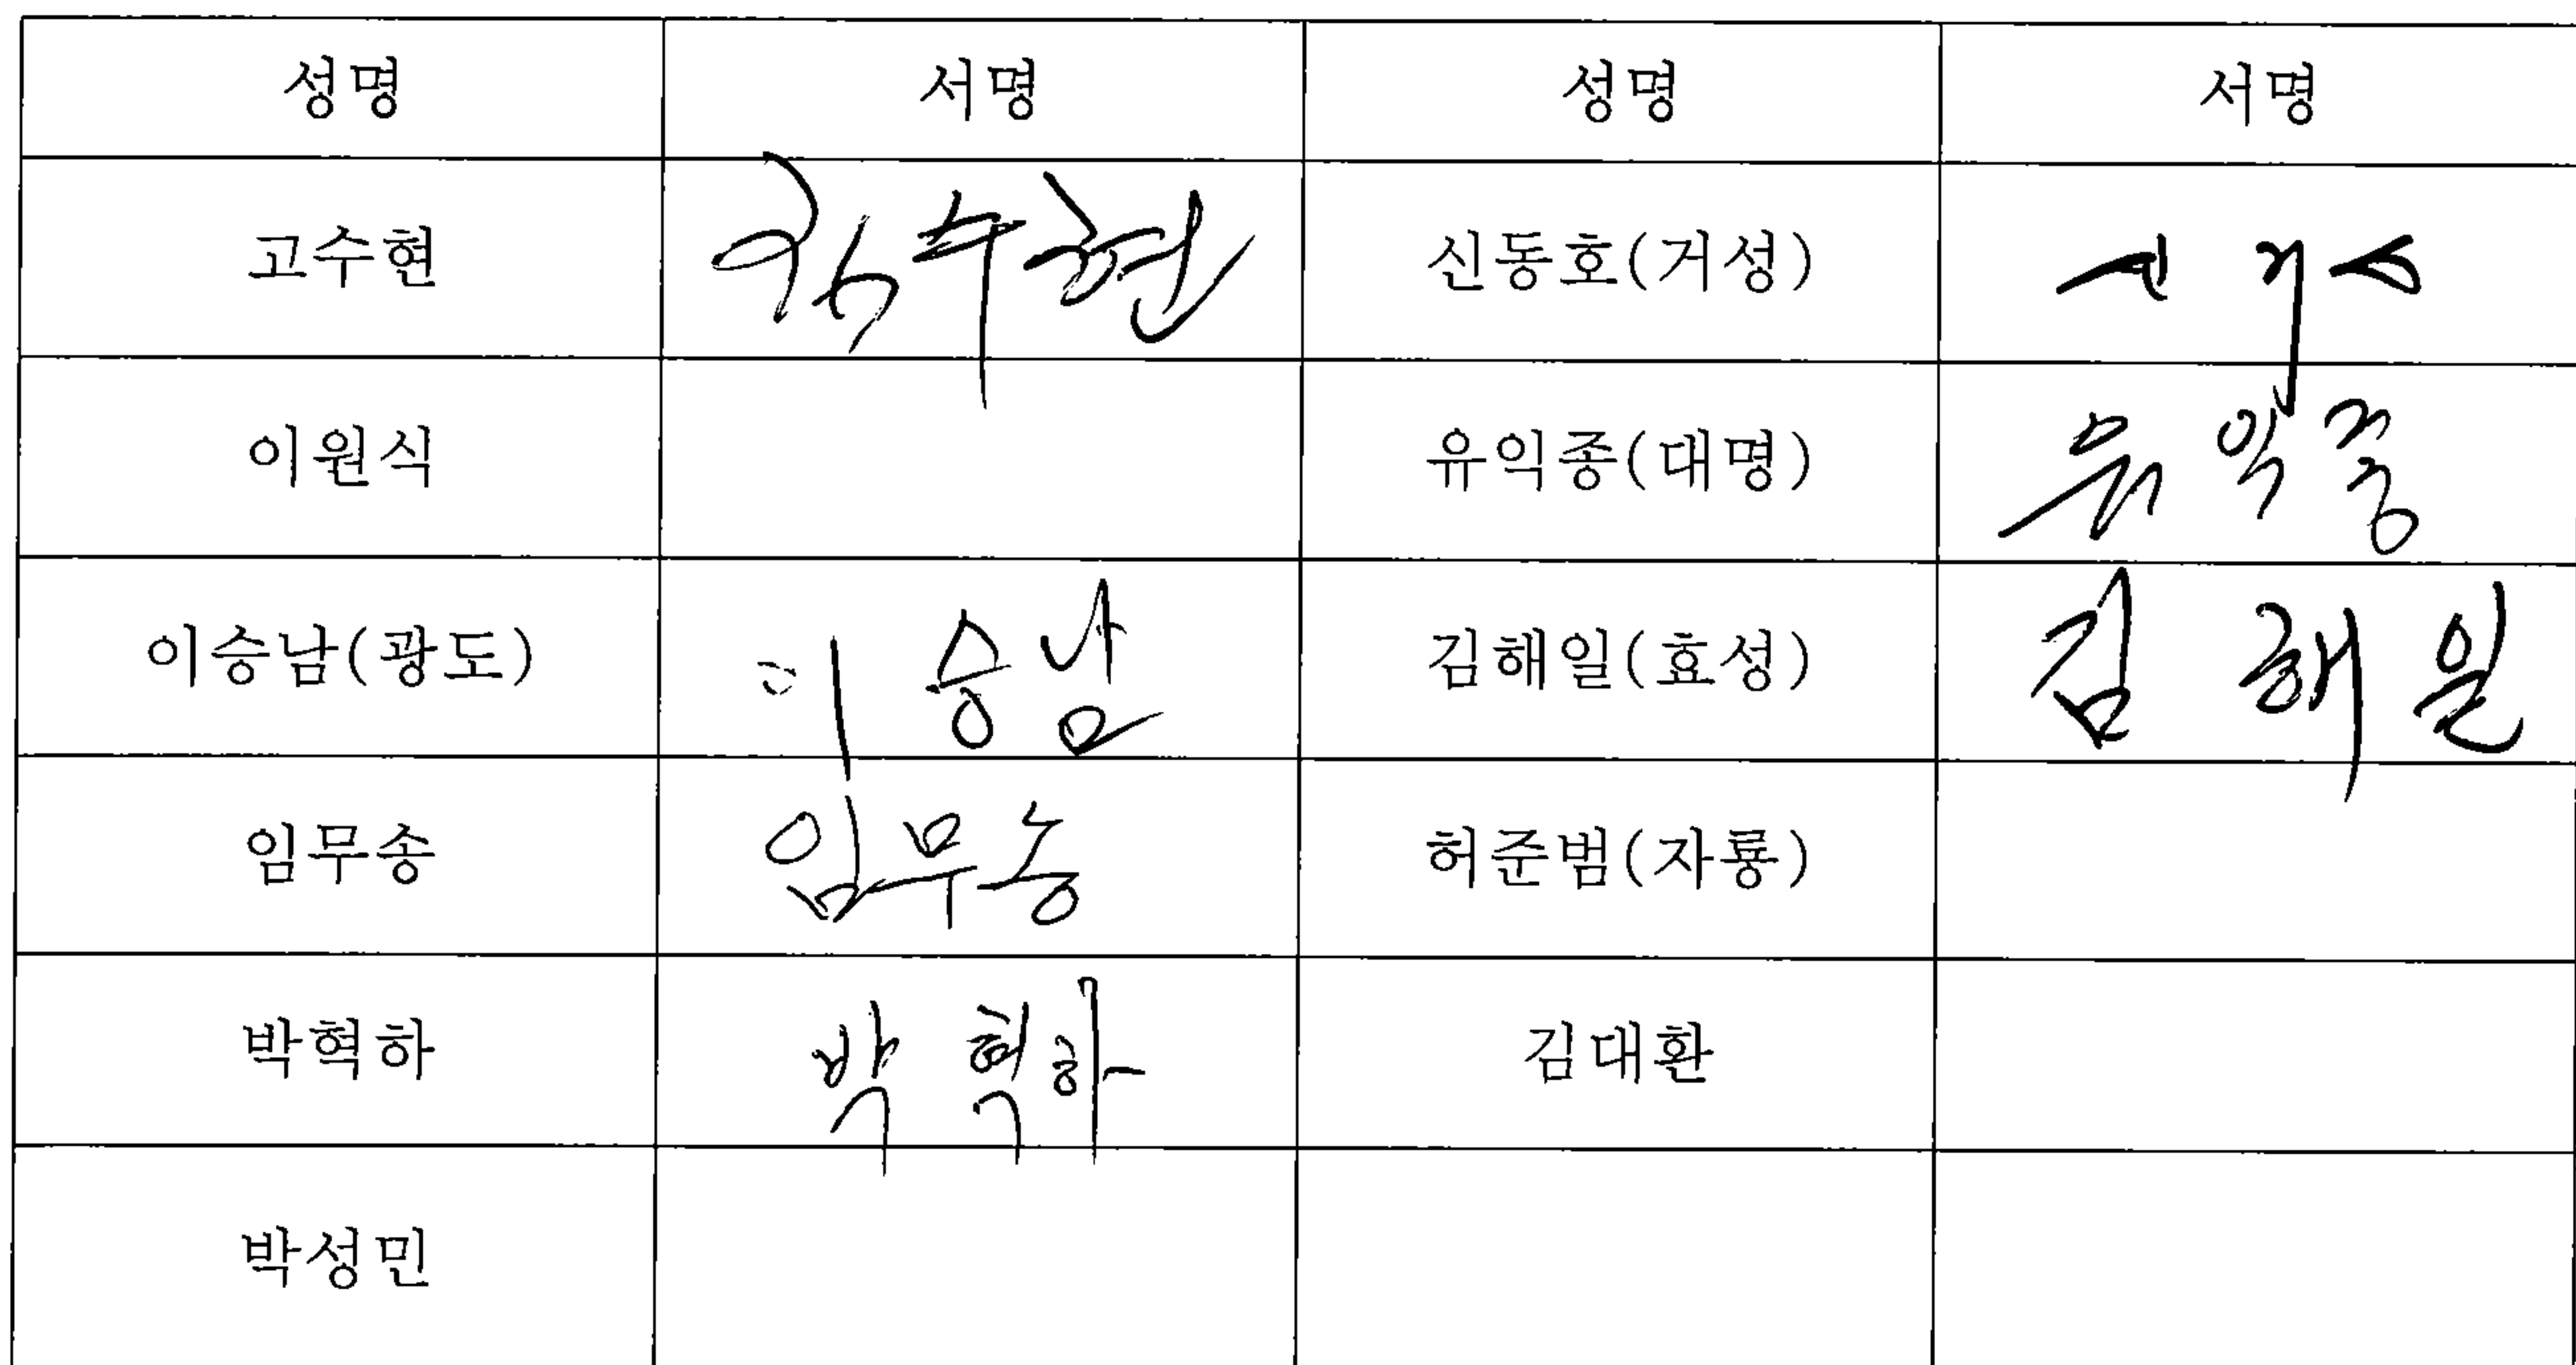 성명 서명 성명 서명
고수현 신동호(거성)
이원식 유익종(대명) 유익종
이승남(광도) 이승남 김해일(효성) 김해일
임무송 임무송 허준범(자룡)
박혁하 박혁하 김대환
박성민